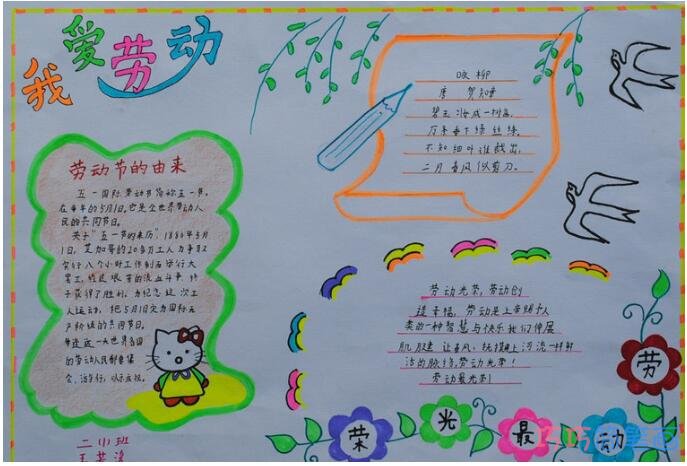 我爱劳动
劳动节的由来
五一国际劳动节简称五一节,
在每年的5月1日。它是全世界劳动人
民的共同节日。
关于"五一节的来历",1886年5月
1日,芝加哥的20多万工人为争取
实行八个小时工作制而举行大
罢工,经过艰苦的流血斗争,终
于获得了胜利。为纪念这次工
人运动,把5月1日定为国际无
产阶级的共同节日。
每逢这一天世界各国
的劳动人民都要集
会、游行,以示庆祝。
二(1)班
咏柳
唐 贺知章
碧玉妆成一树高,
万条垂下绿丝绦。
不知细叶谁裁出,
二月春风似剪刀。
劳动光荣,劳动创
造幸福,劳动是上帝赐予人
类的一种智慧与快乐我们伸展
肌腱 让春风,抚摸 河流一样鲜
活的脉络劳动光荣!
劳动最光荣!
劳
荣光最动